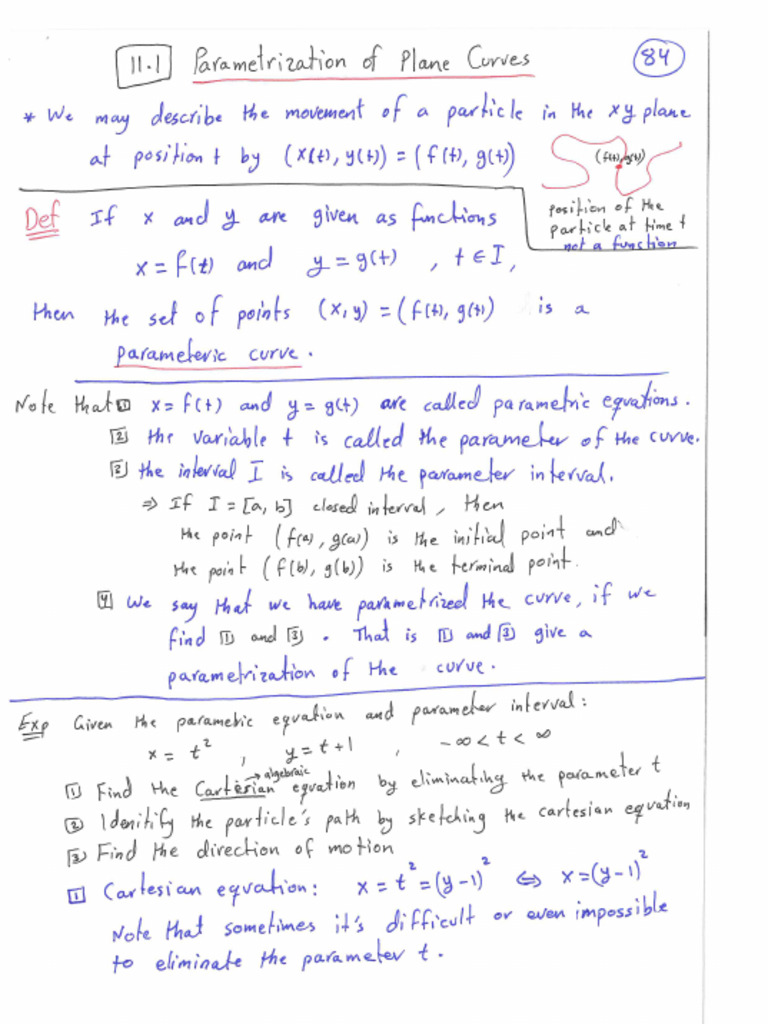 11.1 Parametrization of Plane Curves 84
* We may describe the movement of a particle in the xy plane
at position t by (x(t), y(t)) = (f(t), g(t))
(f(t), g(t))
position of the
particle at time t
not a function
Def If x and y are given as functions
x = f(t) and y = g(t) , t ∈ I,
then the set of points (x,y) = (f(t), g(t)) is a
parameteric curve.
Note that 1 x = f(t) and y = g(t) are called parametric equations.
2 the variable t is called the parameter of the curve.
3 the interval I is called the parameter interval.
⇒ If I = [a, b] closed interval, then
the point (f(a), g(a)) is the initial point and
the point (f(b), g(b)) is the terminal point.
4 We say that we have parametrized the curve, if we
find 1 and 3. That is 1 and 3 give a
parametrization of the curve.
Exp Given the parametric equation and parameter interval:
x = t² , y = t+1 , -∞ < t < ∞
→ algebraic
1 Find the Cartesian equation by eliminating the parameter t
2 Idenitify the particle's path by sketching the cartesian equation
3 Find the direction of motion
1 Cartesian equation: x = t² = (y-1)² ⇔ x = (y-1)²
Note that sometimes it's difficult or even impossible
to eliminate the parameter t.